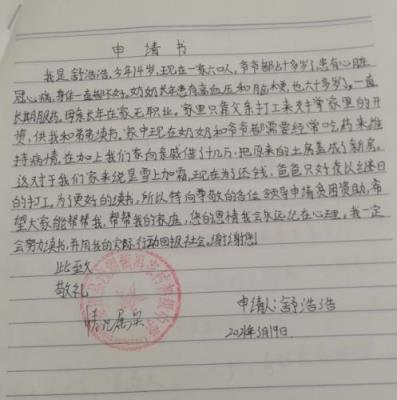 申请书
我是舒浩浩,今年14岁,现在一家六口人,爷爷都六十多岁了,患有心脏
冠心病,身体一直都不好,奶奶长年患有高血压和脑梗,也六十多岁了。一直
长期服药,母亲长年在家无职业。家里只靠父亲打工来支撑家里的开
资,供我和弟弟读书。家中现在奶奶和爷爷都需要经常吃药来维
持病情,在加上我们家向亲戚借了几万,把原来的土房盖成了新房。
这对于我们家来说是雪上加霜,现在为了还钱,爸爸只好夜以继日
的打工。为了更好的读书,所以特向尊敬的各位领导申请费用资助,希
望大家能帮帮我,帮帮我的家庭,您的恩情我会永远记在心理。我一定
会努力读书,并用我的实际行动回报社会。谢谢您!
此致
敬礼
情况属实
申请人:舒浩浩
2021年3月19日